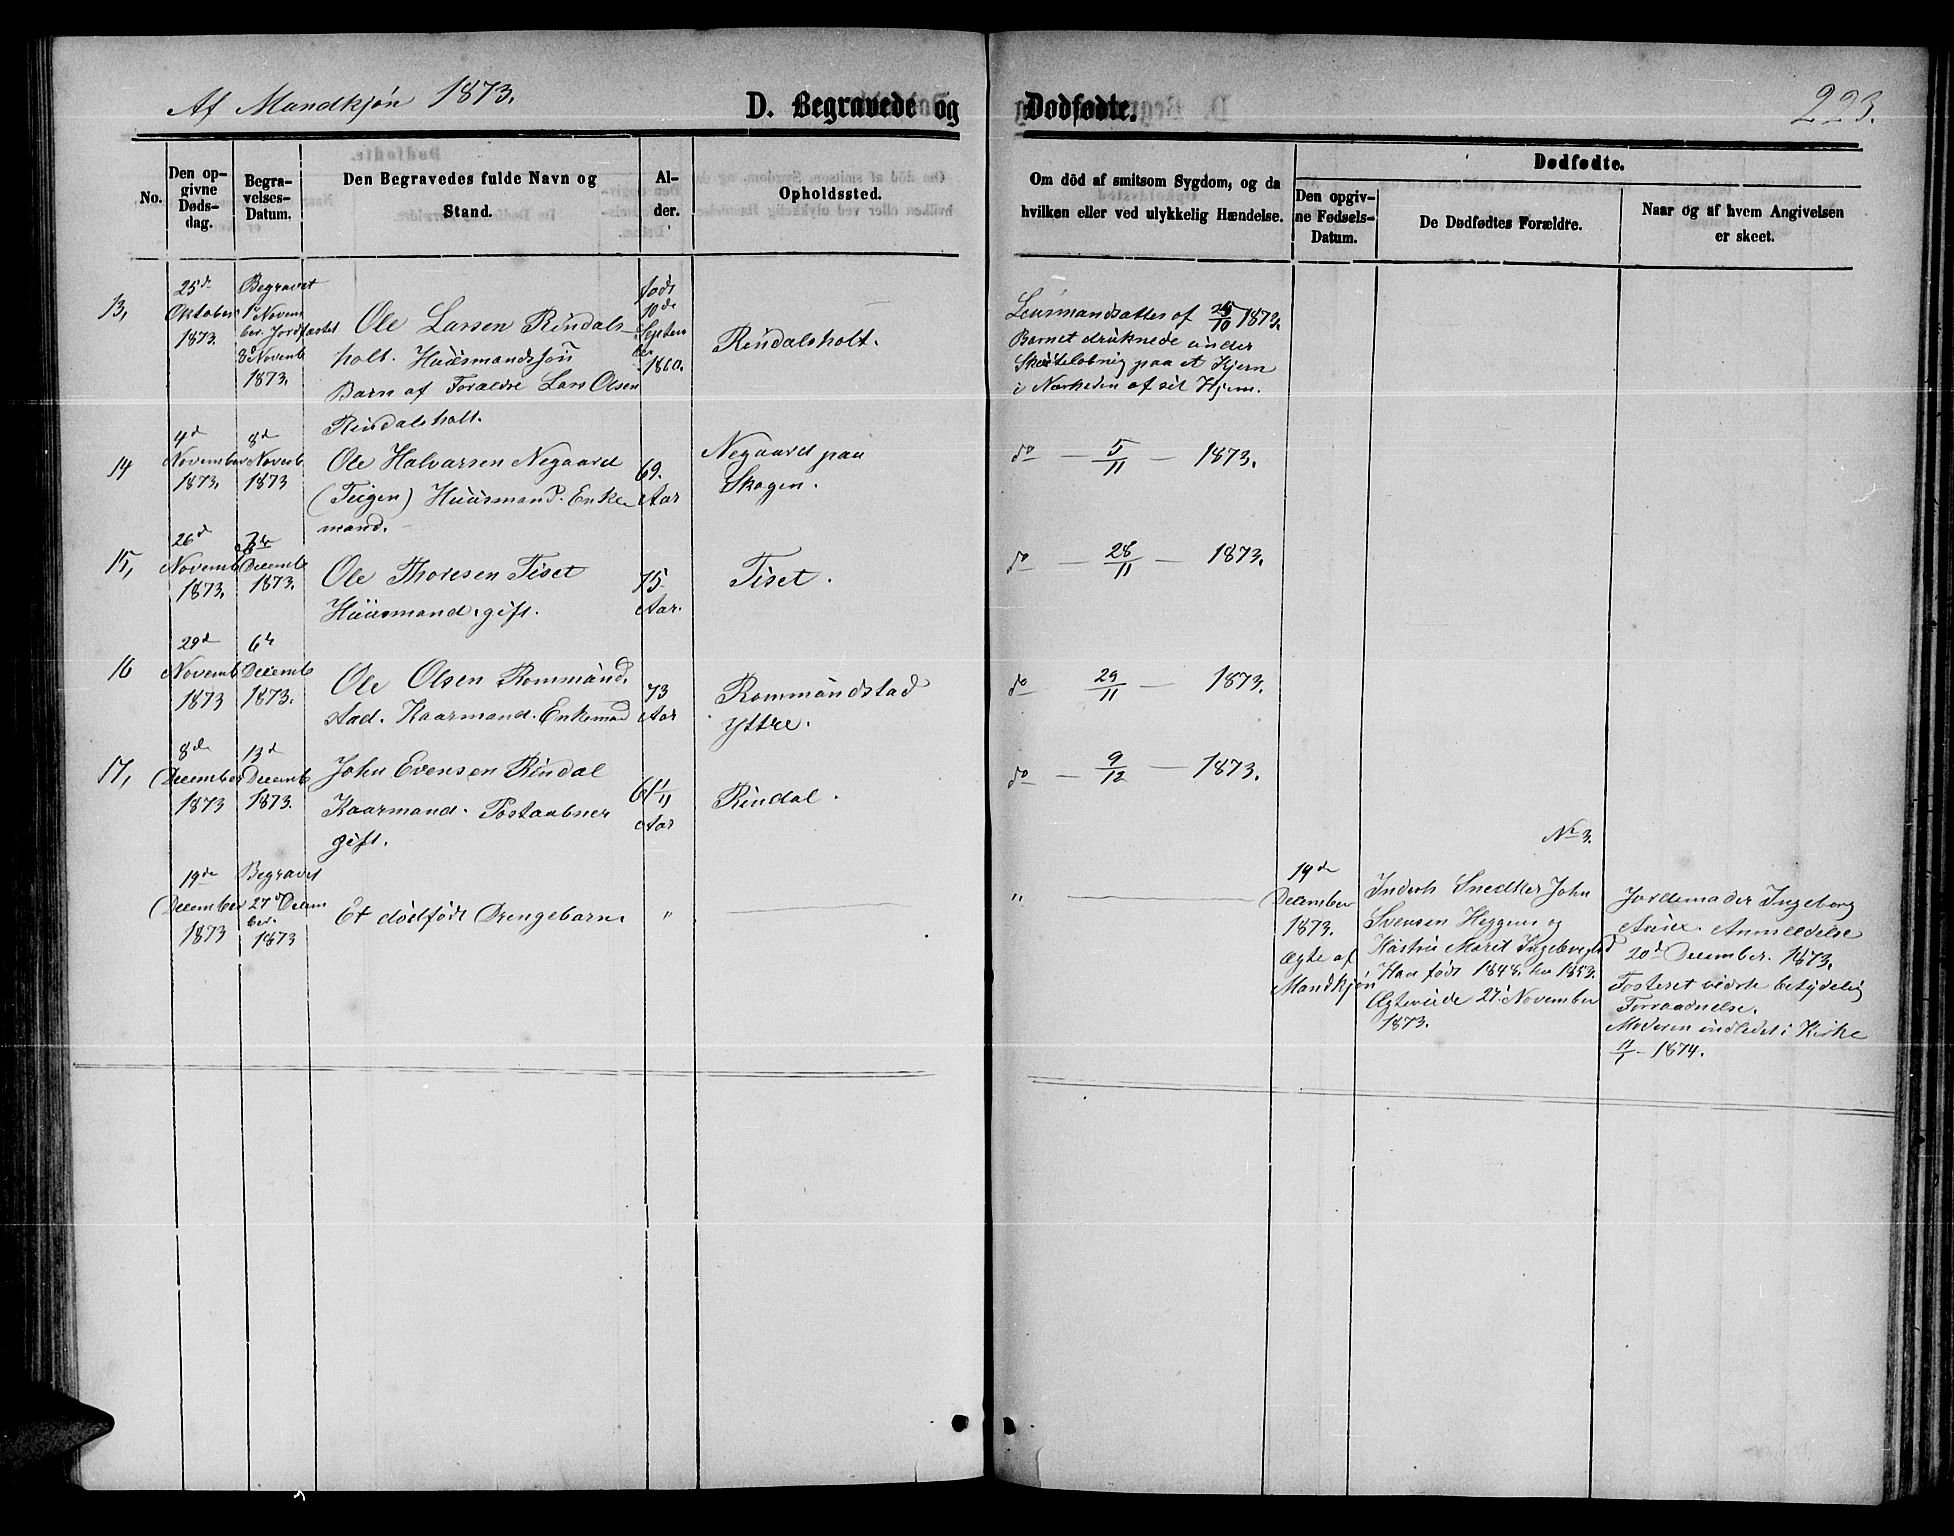 Af Mandkjøn 1873.
D. Begravede og Dødfødte.
223.
No.
Den op-
givne
Døds-
dag.
Begra-
velses-
Datum.
Den Begravedes fulde Navn og
Stand.
Al-
der.
Opholdssted.
Om död af smitsom Sygdom, og da
hvilken eller ved ulykkelig Hændelse.
Dødfødte.
Den opgiv-
ne Fødsels-
Datum.
De Dødfødtes Forældre.
Naar og af hvem Angivelsen
er skeet.
13,
25de
Oktober
1873.
Begravet
1ste Novem
ber. Jordfæstet
8de Novemb
1873.
Ole Larsen Rindals-
holt. Huusmandssøn
Barn af Forældre Lars Olsen
Rindalsholt.
født
10de
Septem
ber
1860.
Rindalsholt.
Lensmandsattes af 26/10 1873.
Barnet druknede under
Skøiteløbnig paa et Kjern
i Nærheden af sit Hjem.
14
4de
November
1873.
8de
Novemb.
1873
Ole Halvarsen Negaard
(Teigen) Huusmand. Enke
mand.
69.
Aar
Negaard paa
Skogen.
do - 5/11 - 1873.
15,
26de
Novemb
1873.
Decemb
1873.
Ole Thoresen Tiset
Huusmand, gift.
75
Aar.
Tiset.
do - 28/11 - 1873.
16
29de
Novemb
1873
6te
Decemb
1873.
Ole Olsen Rommund
stad. Kaarmand. Enkemand
73
Aar
Rommundstad
Yttre.
do 29/11 - 1873.
17,
8de
December
1873
13de
Decemb
1873.
John Evensen Rindal
Kaarmand. Postaabner
gift.
Aar
Rindal.
do - 9/12 - 1873.
19de
December
1873
Begravet
27de Decem
ber.
1873
Et dødfødt Drengebarn.
"
"
19de
December
1873.
Ægte af
Mandkjøn
No 3.
Inderst Snedker John
Svensen Heggen og
Hustru Marit Ingebregtsd
Han født 1848. hun 1853.
Ægteviede 27 November
1873.
Jordemoder Ingeborg
Anmeldelse
20de December. 1873.
Fosteret vidste betydelig
Forraadnelse.
Moderen indledet i Kirke
11/1 - 1874.